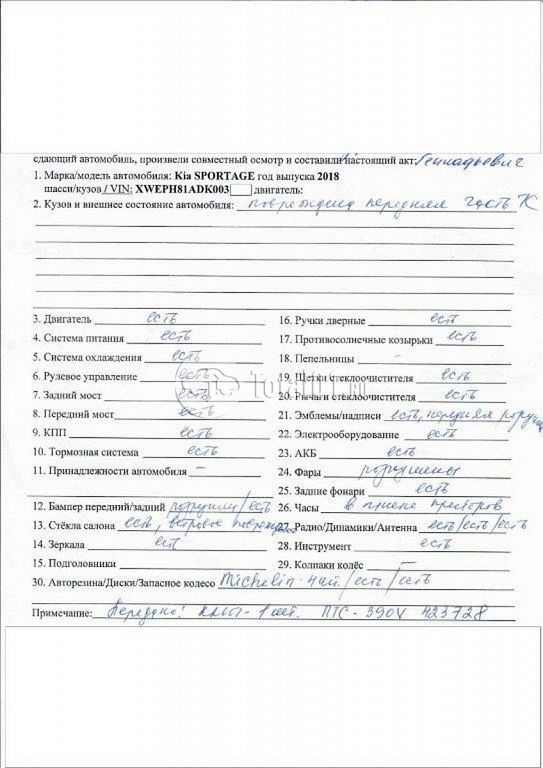 сдающий автомобиль, произвели совместный осмотр и составили настоящий акт: Геннадьевич
1. Марка/модель автомобиля: Kia SPORTAGE год выпуска 2018
шасси/кузов / VIN: XWEPH81ADK003 двигатель:
2. Кузов и внешнее состояние автомобиля: передняя часть ТС
3. Двигатель есть
4. Система питания есть
5. Система охлаждения есть
6. Рулевое управление есть
7. Задний мост есть
8. Передний мост есть
9. КПП есть
10. Тормозная система есть
11. Принадлежности автомобиля –
12. Бампер передний/задний /есть
13. Стёкла салона есть, ветровое
14. Зеркала есть
15. Подголовники
16. Ручки дверные есть
17. Противосолнечные козырьки есть
18. Пепельницы -
19. Щетки стеклоочистителя есть
20. Рычаги стеклоочистителя есть
21. Эмблемы/надписи есть, передняя
22. Электрооборудование есть
23. АКБ есть
24. Фары
25. Задние фонари есть
26. Часы в
27. Радио/Динамики/Антенна есть/есть/есть
28. Инструмент есть
29. Колпаки колёс –
30. Авторезина/Диски/Запасное колесо Michelin /есть/есть
Примечание: Передано: ключ - 1 шт. ПТС - 390У 423728